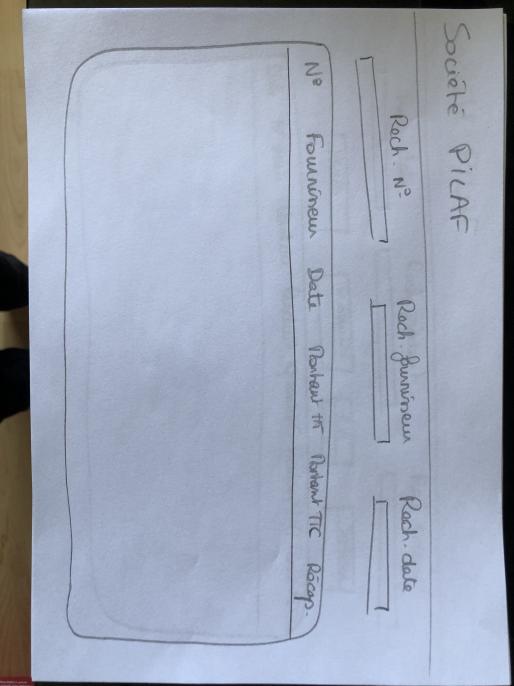 Société PILAF
Rech. N° Rech. fournisseur Rech. date
N° Fournisseur Date Montant HT Montant TTC Récap.